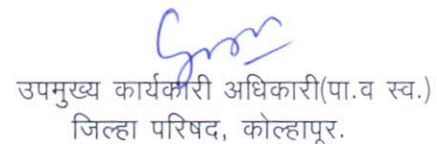 उपमुख्य कार्यकारी अधिकारी(पा.व स्व.)
जिल्हा परिषद, कोल्हापूर.